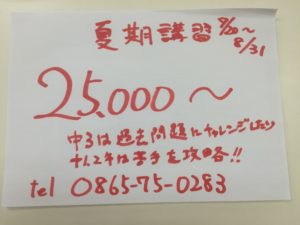 夏期講習 8/20〜8/31
25,000〜
中3は過去問題にチャレンジしたり
中1.2年は苦手を攻略!!
tel 0865-75-0283